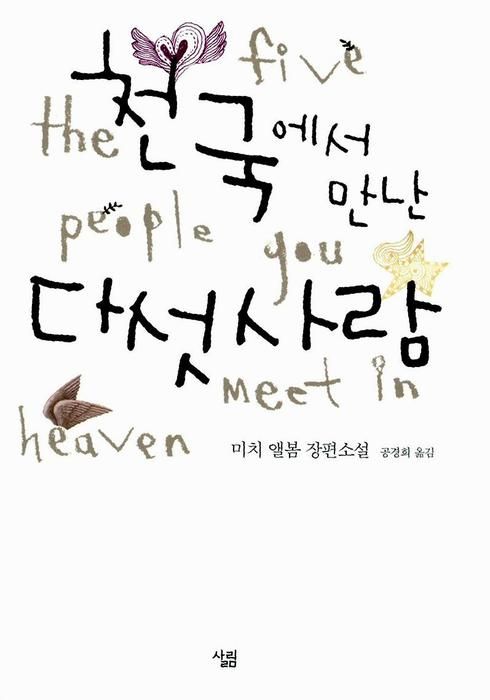 the five
people you
meet in
heaven
천국에서
만난
다섯사람
미치 앨봄 장편소설 공경희 옮김
살림